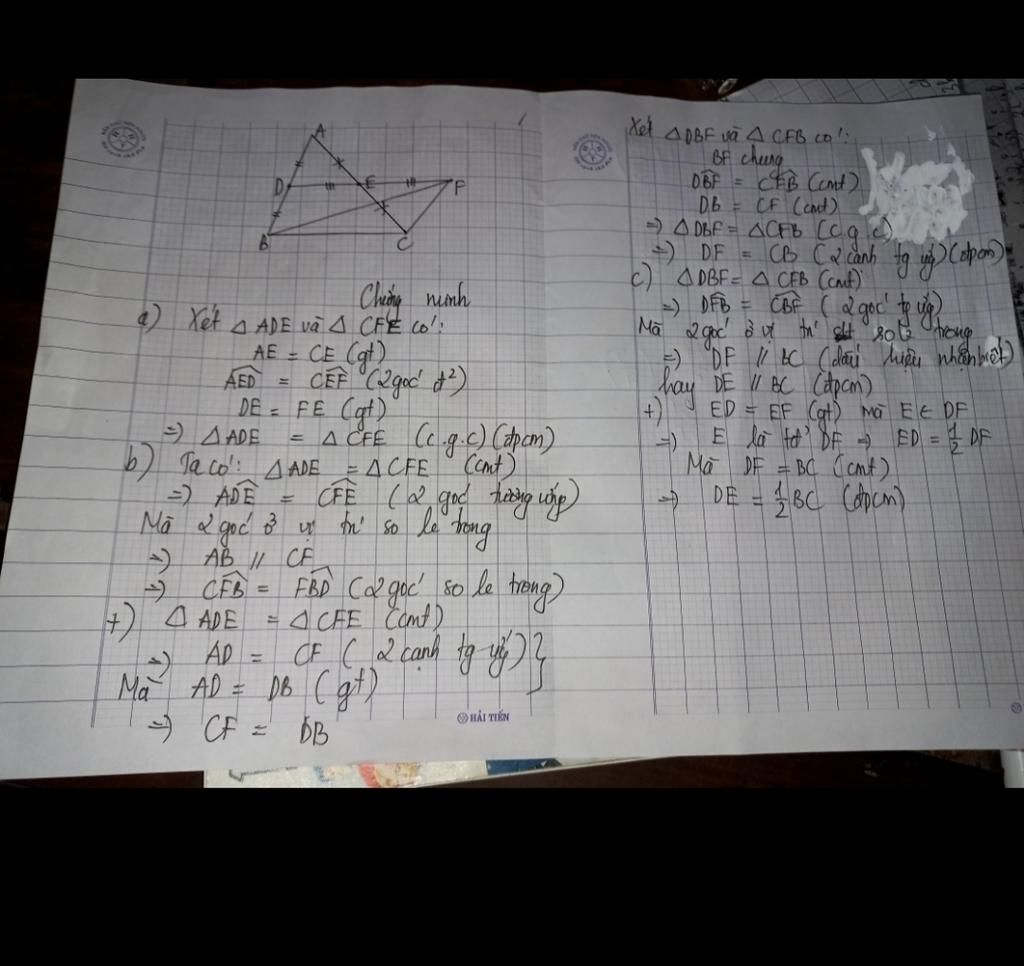 A
D
E
F
B
C
Chứng minh
a) Xét △ ADE và △ CFE có:
AE = CE (gt)
AED = CEF (2 góc đ²)
DE = FE (gt)
=> △ ADE = △ CFE (c.g.c) (đpcm)
b) Ta có: △ ADE = △ CFE (cmt)
=> ADE = CFE (2 góc tương ứng)
Mà 2 góc ở vị trí so le trong
=> AB // CF
=> CFB = FBD (2 góc so le trong)
+) △ ADE = △ CFE (cmt)
=> AD = CF (2 cạnh tg ứg) }
Mà AD = DB (gt)
=> CF = DB
HẢI TIẾN
Xét △ DBF và △ CFB có:
BF chung
DBF = CFB (cmt)
DB = CF (cmt)
=> △ DBF = △ CFB (c.g.c)
=> DF = CB (2 cạnh tg ứg) (đpcm)
c) △ DBF = △ CFB (cmt)
=> DFB = CBF (2 góc tg ứg)
Mà 2 góc ở vị trí so le trong
=> DF // BC (dấu hiệu nhận biết)
hay DE // BC (đpcm)
+) ED = EF (gt) mà E ∈ DF
=> E là tđ DF => ED = 1/2 DF
Mà DF = BC (cmt)
=> DE = 1/2 BC (đpcm)